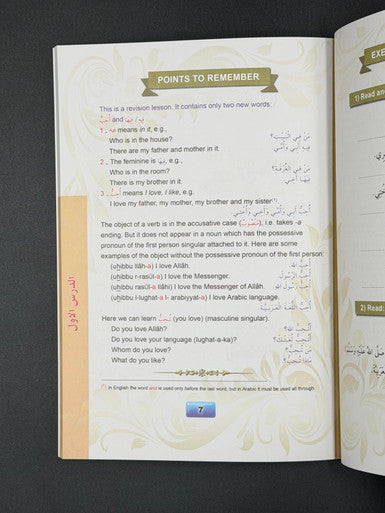 POINTS TO REMEMBER
This is a revision lesson. It contains only two new words:
فِيهِ/فِيهَا and أُحِبُّ
1 - فِيهِ means in it, e.g.,
Who is in the house? مَنْ فِي الْبَيْتِ؟
There are my father and mother in it. فِيهِ أَبِي وَأُمِّي
2 - The feminine is فِيهَا, e.g.,
Who is in the room? مَنْ فِي الْغُرْفَةِ؟
There is my brother in it. فِيهَا أَخِي
3 - أُحِبُّ means I love, I like, e.g.,
I love my father, my mother, my brother and my sister(1).
أُحِبُّ أَبِي وَأُمِّي وَأَخِي وَأُخْتِي.
The object of a verb is in the accusative case (مَنْصُوبٌ), i.e. takes -a
ending. But it does not appear in a noun which has the possessive
pronoun of the first person singular attached to it. Here are some
examples of the object without the possessive pronoun of the first person:
(uhibbu llāh-a) I love Allāh. أُحِبُّ اللهَ
(uhibbu r-rasūl-a) I love the Messenger. أُحِبُّ الرَّسُولَ
(uhibbu rasūl-a llāhi) I love the Messenger of Allāh. أُحِبُّ رَسُولَ اللهِ
(uhibbu l-lughat-a l- arabiyyat-a) I love Arabic language.
أُحِبُّ اللُّغَةَ الْعَرَبِيَّةَ
Here we can learn تُحِبُّ (you love) (masculine singular).
Do you love Allāh? أَتُحِبُّ اللهَ؟
Do you love your language (lughat-a-ka)? أَتُحِبُّ لُغَتَكَ؟
Whom do you love? مَنْ تُحِبُّ؟
What do you like? مَاذَا تُحِبُّ؟
(1) In English the word and is used only before the last word, but in Arabic it must be used all through.
7
الدرس الأول
EXE
1) Read an
2) Read: